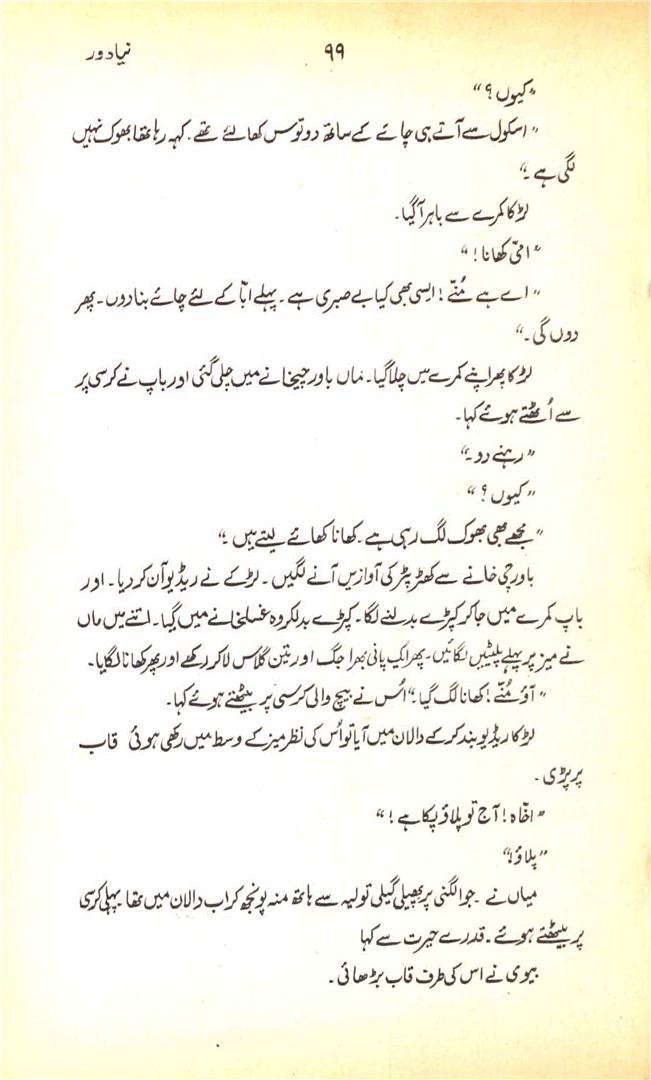 نیا دور ۹۹
"کیوں؟"
"اسکول سے آتے ہی چائے کے ساتھ دو توس کھا لئے تھے۔ کہہ رہا تھا بھوک نہیں
لگی ہے۔"
لڑکا کمرے سے باہر آگیا۔
"امیّ کھانا!"
"اے ہے مُنّے! ایسی بھی کیا بے صبری ہے۔ پہلے ابّا کے لئے چائے بنا دوں۔ پھر
دوں گی۔"
لڑکا پھر اپنے کمرے میں چلا گیا۔ ماں باورچیخانے میں چلی گئی اور باپ نے کرسی پر
سے اُٹھتے ہوئے کہا۔
"رہنے دو۔"
"کیوں؟"
"مجھے بھی بھوک لگ رہی ہے۔ کھانا کھائے لیتے ہیں۔"
باورچی خانے سے کھٹر پٹر کی آوازیں آنے لگیں۔ لڑکے نے ریڈیو آن کر دیا۔ اور
باپ کمرے میں جا کر کپڑے بدلنے لگا۔ کپڑے بدل کر وہ غسلخانے میں گیا۔ اتنے میں ماں
نے میز پر پہلے پلیٹیں لگائیں۔ پھر ایک پانی بھرا جگ اور تین گلاس لا کر رکھے اور پھر کھانا لگایا۔
"آؤ مُنّے! کھانا لگ گیا۔" اُس نے بیچ والی کرسی پر بیٹھتے ہوئے کہا۔
لڑکا ریڈیو بند کر کے دالان میں آیا تو اُس کی نظر میز کے وسط میں رکھی ہوئی قاب
پر پڑی۔
"اخّاہ! آج تو پلاؤ پکا ہے!"
"پلاؤ!"
میاں نے۔ جو الگنی پر پھیلی گیلی تولیہ سے ہاتھ منہ پونچھ کر اب دالان میں تھا۔ پہلی کرسی
پر بیٹھتے ہوئے۔ قدرے حیرت سے کہا
بیوی نے اس کی طرف قاب بڑھائی۔